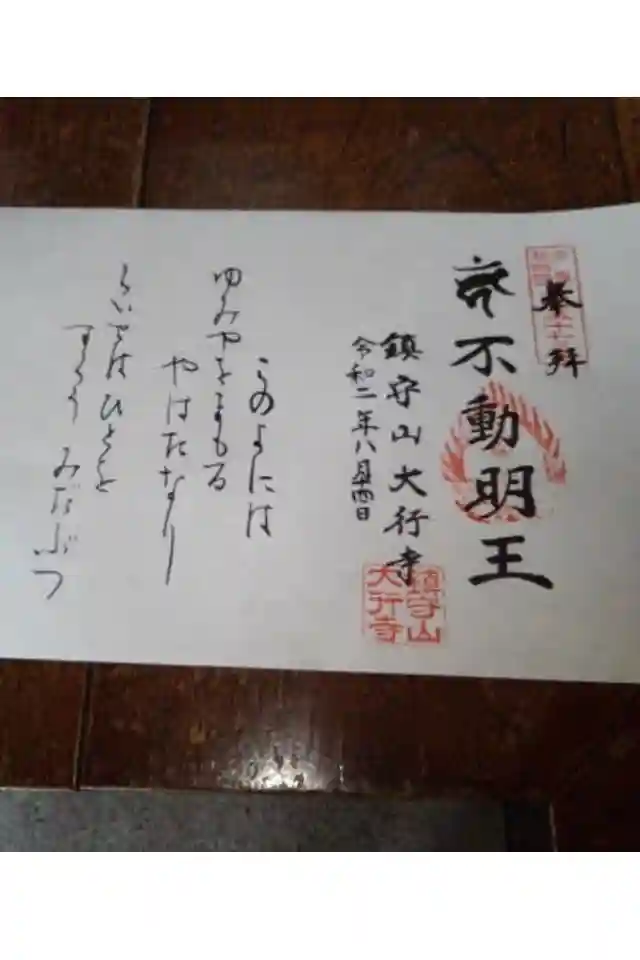 奉拝
不動明王
鎮守山大行寺
令和二年八月十四日
鎮守山
大行寺
このよには
ゆみやをまもる
やはたなり
らいせはひとを
すくうみだぶつ